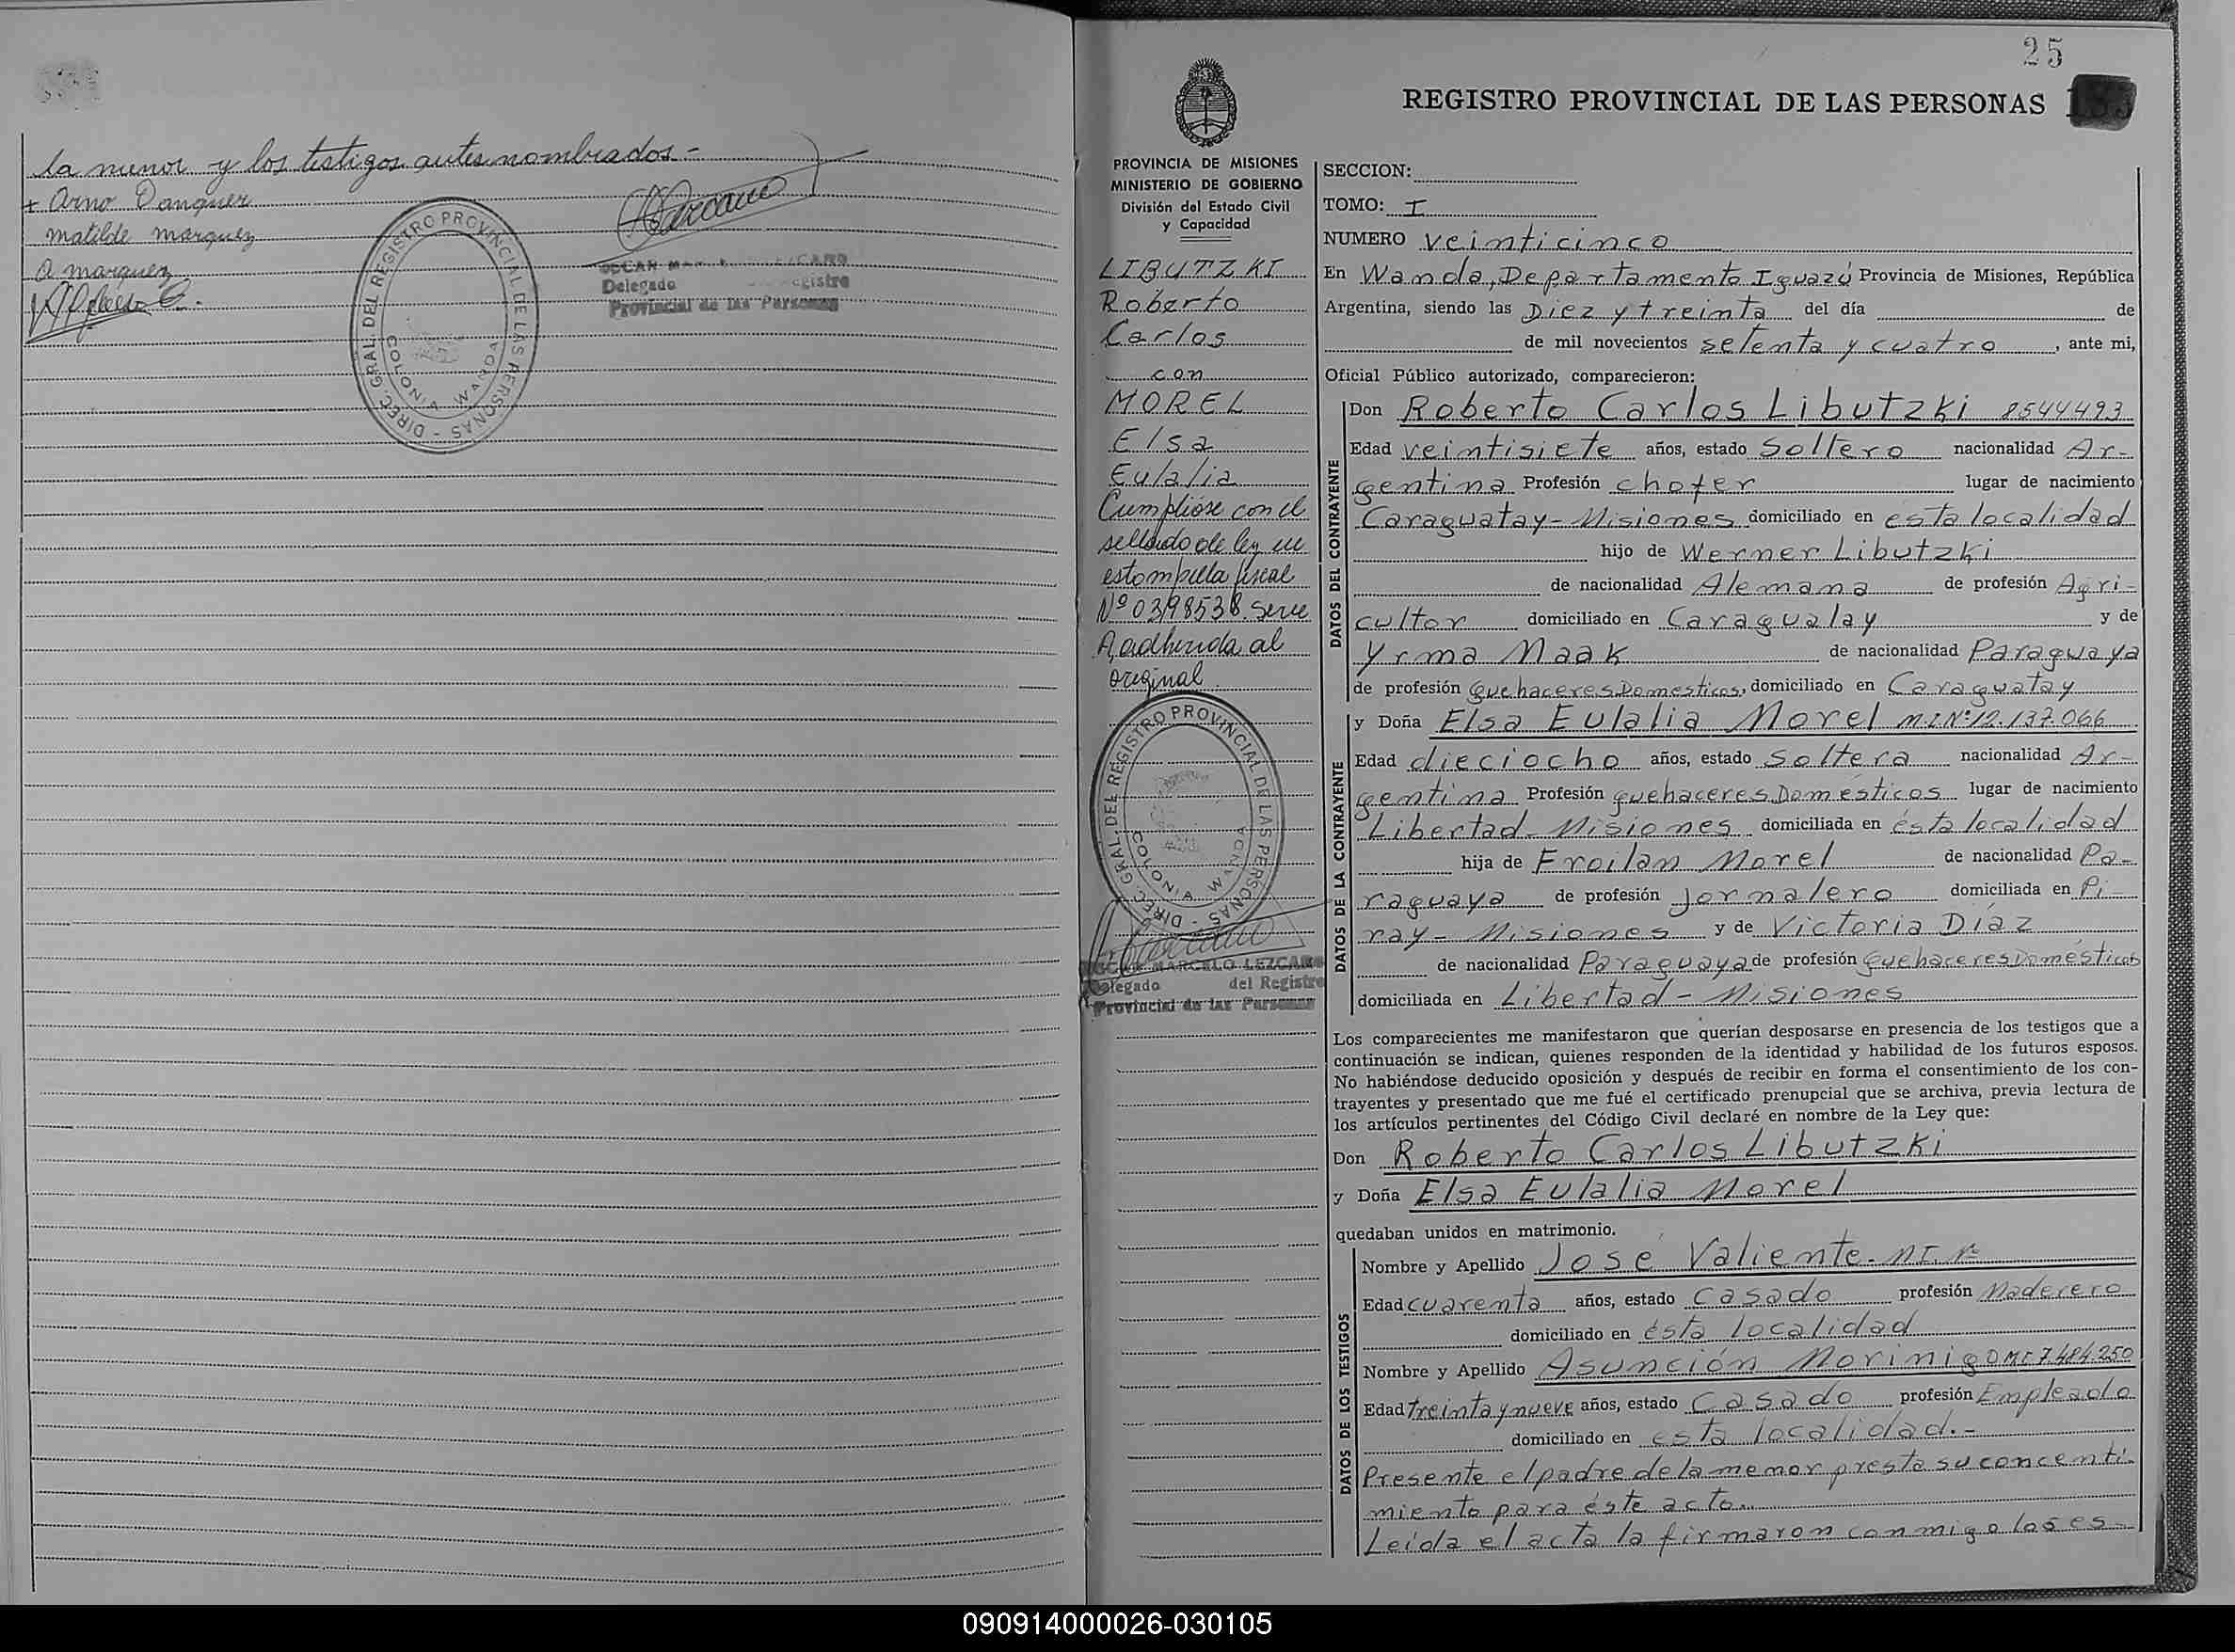 la menor y los testigos antes nombrados.-
+ Arno Danguer
matilde marquez
A marquez
DIREC. GRAL. DEL REGISTRO PROVINCIAL DE LAS PERSONAS -
COLONIA WANDA
Delegado
Provincial de las Personas
25
REGISTRO PROVINCIAL DE LAS PERSONAS
PROVINCIA DE MISIONES
MINISTERIO DE GOBIERNO
División del Estado Civil
y Capacidad
LIBUTZKI
Roberto
Carlos
con
MOREL
Elsa
Eulalia
Cumplióse con el
sellado de ley en
estampilla fiscal
Nº 0398538. Serie
A, adherida al
original
DIREC. GRAL. DEL REGISTRO PROVINCIAL DE LAS PERSONAS -
COLONIA WANDA
OSCAR MARCELO LEZCANO
Delegado del Registro
Provincial de las Personas
SECCION:
TOMO: I
NUMERO veinticinco
En Wanda, Departamento Iguazú Provincia de Misiones, República
Argentina, siendo las Diez y treinta del día de
de mil novecientos setenta y cuatro, ante mi,
Oficial Público autorizado, comparecieron:
DATOS DEL CONTRAYENTE
Don Roberto Carlos Libutzki 8544493
Edad veintisiete años, estado Soltero nacionalidad Ar-
gentina Profesión chofer lugar de nacimiento
Caraguatay - Misiones domiciliado en esta localidad
hijo de Werner Libutzki
de nacionalidad Alemana de profesión Agri-
cultor domiciliado en Caraguatay y de
Yrma Maak de nacionalidad Paraguaya
de profesión Quehaceres Domesticos, domiciliado en Caraguatay
DATOS DE LA CONTRAYENTE
y Doña Elsa Eulalia Morel M.I.Nº 12.137.066
Edad dieciocho años, estado Soltera nacionalidad Ar-
gentina Profesión quehaceres Domésticos lugar de nacimiento
Libertad - Misiones domiciliada en ésta localidad
hija de Froilan Morel de nacionalidad Pa-
raguaya de profesión Jornalero domiciliada en Pi-
ray - Misiones y de Victoria Díaz
de nacionalidad Paraguaya de profesión Quehaceres Domésticos
domiciliada en Libertad - Misiones
Los comparecientes me manifestaron que querían desposarse en presencia de los testigos que a
continuación se indican, quienes responden de la identidad y habilidad de los futuros esposos.
No habiéndose deducido oposición y después de recibir en forma el consentimiento de los con-
trayentes y presentado que me fué el certificado prenupcial que se archiva, previa lectura de
los artículos pertinentes del Código Civil declaré en nombre de la Ley que:
Don Roberto Carlos Libutzki
y Doña Elsa Eulalia Morel
quedaban unidos en matrimonio.
DATOS DE LOS TESTIGOS
Nombre y Apellido José Valiente. M.I. Nº
Edad cuarenta años, estado Casado profesión Maderero
domiciliado en ésta localidad
Nombre y Apellido Asunción Morinigo M.I. 7.484.250
Edad treinta y nueve años, estado Casado profesión Empleado
domiciliado en esta localidad.-
Presente el padre de la menor presta su concenti-
miento para éste acto.
Leída el acta la firmaron conmigo los es-
090914000026-030105